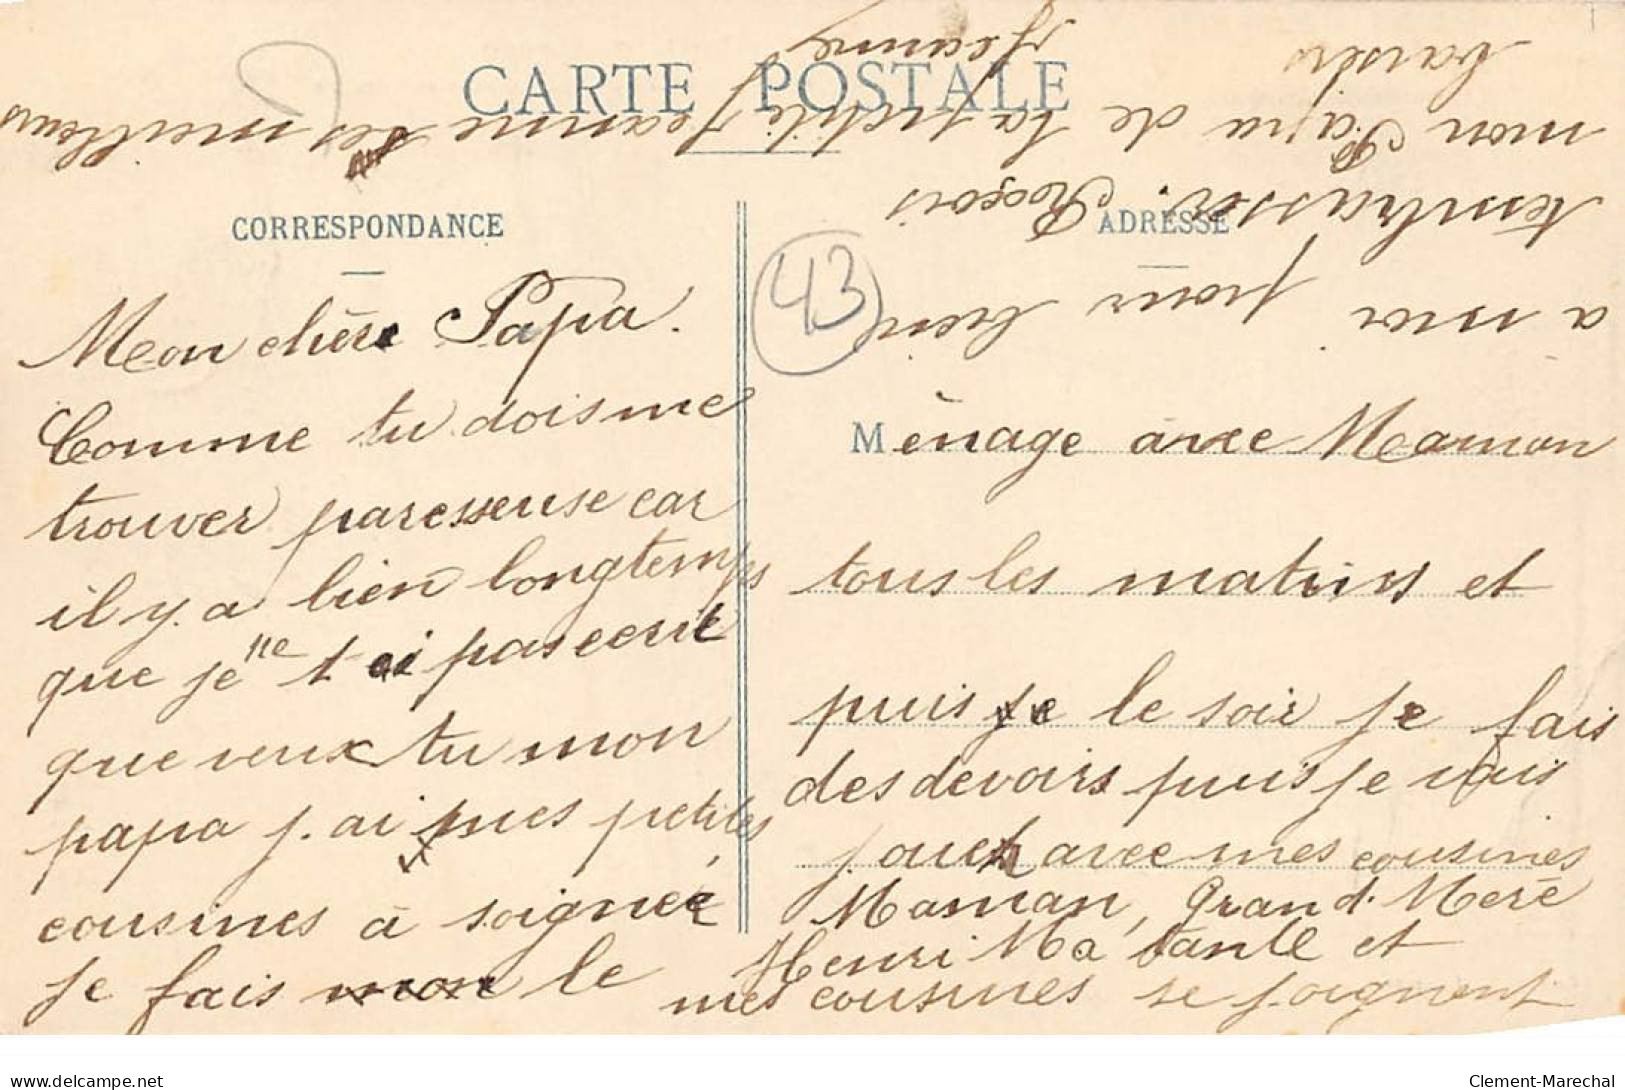 CARTE POSTALE
CORRESPONDANCE
ADRESSE
43
Mon chère Papa.
Comme tu dois me
trouver paresseuse car
il y a bien longtemps
que je ne t ai pas ecrit
que veux tu mon
papa j.ai mes petites
cousines à soignée
je fais mon le
Mènage avec Maman
tous les matins et
puis je le soir je fais
des devoirs puis je vais
jouer avec mes cousines
Maman, Grand. Merè
Henri Ma tante et
mes cousines se joignent
a moi pour bien
tembrasser. Reçois
mon Papa de ta petite Jeanne les meilleurs
baisers
Jeanne
Clement-Marechal
delcampe.net